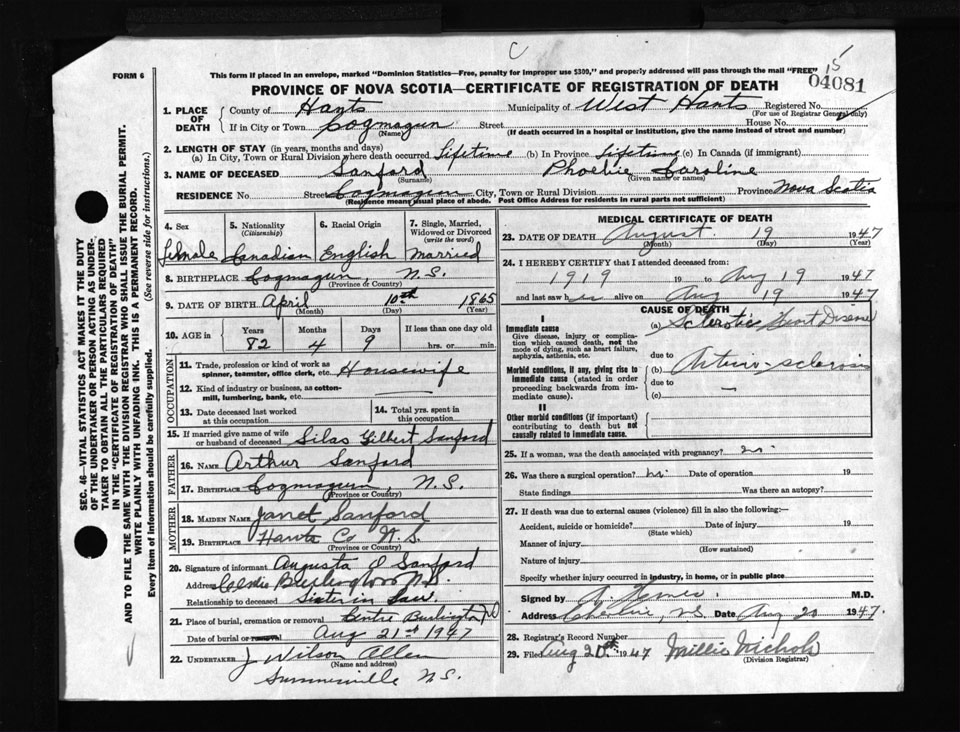 C
15
FORM 6
This form if placed in an envelope, marked "Dominion Statistics—Free, penalty for improper use $300," and properly addressed will pass through the mail "FREE"
04081
PROVINCE OF NOVA SCOTIA—CERTIFICATE OF REGISTRATION OF DEATH
1. PLACE OF DEATH County of Hants Municipality of West Hants Registered No.
(For use of Registrar General only)
If in City or Town Cogmagun Street House No.
(Name) (If death occurred in a hospital or institution, give the name instead of street and number)
2. LENGTH OF STAY (in years, months and days)
(a) In City, Town or Rural Division where death occurred Lifetime (b) In Province Lifetime (c) In Canada (if immigrant)
3. NAME OF DECEASED Sanford Phoebie Caroline
(Surname) (Given name or names)
RESIDENCE No. Street Cogmagun City, Town or Rural Division Province Nova Scotia
(Residence means usual place of abode. Post Office Address for residents in rural parts not sufficient)
4. Sex 5. Nationality (Citizenship) 6. Racial Origin 7. Single, Married, Widowed or Divorced (write the word)
female Canadian English Married
8. BIRTHPLACE Cogmagun N.S.
(Province or Country)
9. DATE OF BIRTH April 10th 1865
(Month) (Day) (Year)
10. AGE in Years Months Days If less than one day old
82 4 9 hrs. or min.
OCCUPATION
11. Trade, profession or kind of work as spinner, teamster, office clerk, etc. Housewife
12. Kind of industry or business, as cotton-mill, lumbering, bank, etc. —
13. Date deceased last worked at this occupation
14. Total yrs. spent in this occupation
15. If married give name of wife or husband of deceased Silas Gilbert Sanford
FATHER
16. NAME Arthur Sanford
17. BIRTHPLACE Cogmagun, N.S.
(Province or Country)
MOTHER
18. MAIDEN NAME Janet Sanford
19. BIRTHPLACE Hants Co N.S.
(Province or Country)
20. Signature of informant Augusta O Sanford
Address Centre Burlington N.S.
Relationship to deceased Sister in Law
21. Place of burial, cremation or removal Centre Burlington N.S.
Date of burial or removal Aug 21st 1947
22. UNDERTAKER J Wilson Allen
(Name and address)
Summerville N.S.
MEDICAL CERTIFICATE OF DEATH
23. DATE OF DEATH August 19 1947
(Month) (Day) (Year)
24. I HEREBY CERTIFY that I attended deceased from:
1919 19 to Aug 19 1947
and last saw her alive on Aug 19 1947
CAUSE OF DEATH
I
Immediate cause
Give disease, injury or complication which caused death, not the mode of dying, such as heart failure, asphyxia, asthenia, etc.
(a) Sclerotic Heart Disease
due to
Morbid conditions, if any, giving rise to immediate cause (stated in order proceeding backwards from immediate cause).
(b) Arterio-sclerosis
due to —
(c)
II
Other morbid conditions (if important) contributing to death but not causally related to immediate cause.
25. If a woman, was the death associated with pregnancy? no
26. Was there a surgical operation? no Date of operation 19
State findings Was there an autopsy?
27. If death was due to external causes (violence) fill in also the following:—
Accident, suicide or homicide? Date of injury 19
(State which)
Manner of injury
(How sustained)
Nature of injury
Specify whether injury occurred in industry, in home, or in public place
Signed by M.D.
Address N.S. Date Aug 20 1947.
28. Registrar's Record Number
29. Filed Aug 20th 1947 Millie Nichols
(Division Registrar)
SEC. 46—VITAL STATISTICS ACT MAKES IT THE DUTY
OF THE UNDERTAKER OR PERSON ACTING AS UNDER-
TAKER TO OBTAIN ALL THE PARTICULARS REQUIRED
IN THE "CERTIFICATE OF REGISTRATION OF DEATH"
AND TO FILE THE SAME WITH THE DIVISION REGISTRAR WHO SHALL ISSUE THE BURIAL PERMIT.
WRITE PLAINLY WITH UNFADING INK. THIS IS A PERMANENT RECORD.
Every item of information should be carefully supplied. (See reverse side for instructions.)